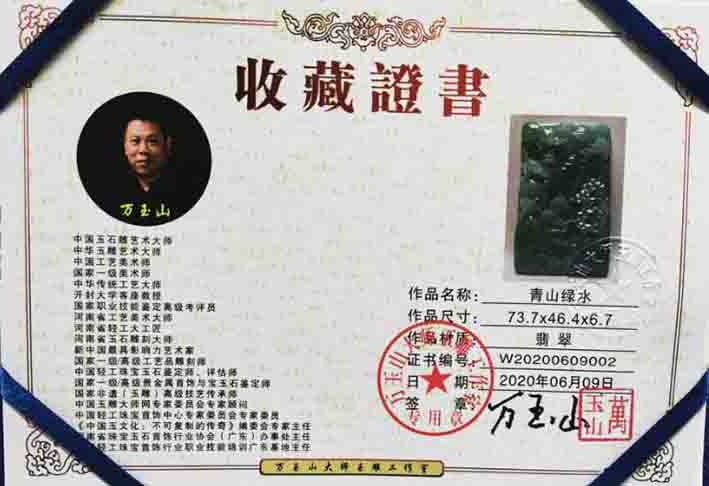 收藏證書
万玉山
中国玉石雕艺术大师
中华玉雕艺术大师
中国工艺美术师
国家一级美术师
中华传统工艺大师
开封大学客座教授
国家职业技能鉴定高级考评员
河南省工艺美术大师
河南省轻工大工匠
河南省玉石雕刻大师
新中国最具影响力艺术家
国家一级高级工艺品雕刻师
中国轻工珠宝玉石鉴定师、评估师
国家一级高级贵金属首饰与宝玉石鉴定师
国家非遗（玉雕）高级技艺传承师
中国玉雕大师网专家委员会专家顾问
中国轻工珠宝首饰中心专家委员会专家委员
《中国玉文化：不可复制的传奇》编委会专家主任
南省珠宝玉石首饰行业协会（广东）办事处主任
轻工珠宝首饰行业职业技能培训广东基地主任
作品名称：青山绿水
作品尺寸：73.7x46.4x6.7
作品材质：翡翠
证书编号：W20200609002
日期：2020年06月09日
签章：万玉山
萬玉山
专用章
万玉山大师玉雕工作室